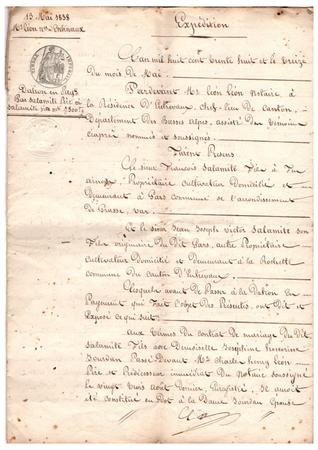 13 Mai 1838
Expédition
L'an mil huit cent trente huit et le treize
du mois de Mai
Pardevant Me Léon Léon Notaire, à
la Résidence d'Entrevaux, chef-lieu de Canton,
Département des Basses Alpes, assisté de Témoins
ciaprès nommés et soussignés.
Dation en Paye
Par Salamité Père à
Salamité fils
Furent Présens
Le sieur François Salamité Fils à feu
Propriétaire Cultivateur Domicilié et
Demeurant à Gars Commune de l'arrondissement
De Grasse, Var
et le sieur Jean Joseph Victor Salamité son
Fils originaire du Dit Gars, autre Propriétaire
Cultivateur Domicilié et Demeurant à la Rochette
Commune du Canton d'Entrevaux
Lesquels avant de Passer à la Dation en
Payement qui Fait l'objet des Présentes, ont Dit et
Exposé ce qui suit
aux Termes du Contrat de mariage du Dit
Salamité Fils avec Demoiselle Joséphine
Jourdan Passé Devant Me Charles henry Léon
Père et Prédécesseur immédiat du Notaire soussigné
le vingt trois août Dernier, Enregistré, Il auroit
été constitué en Dot à la Dame Jourdan Epouse